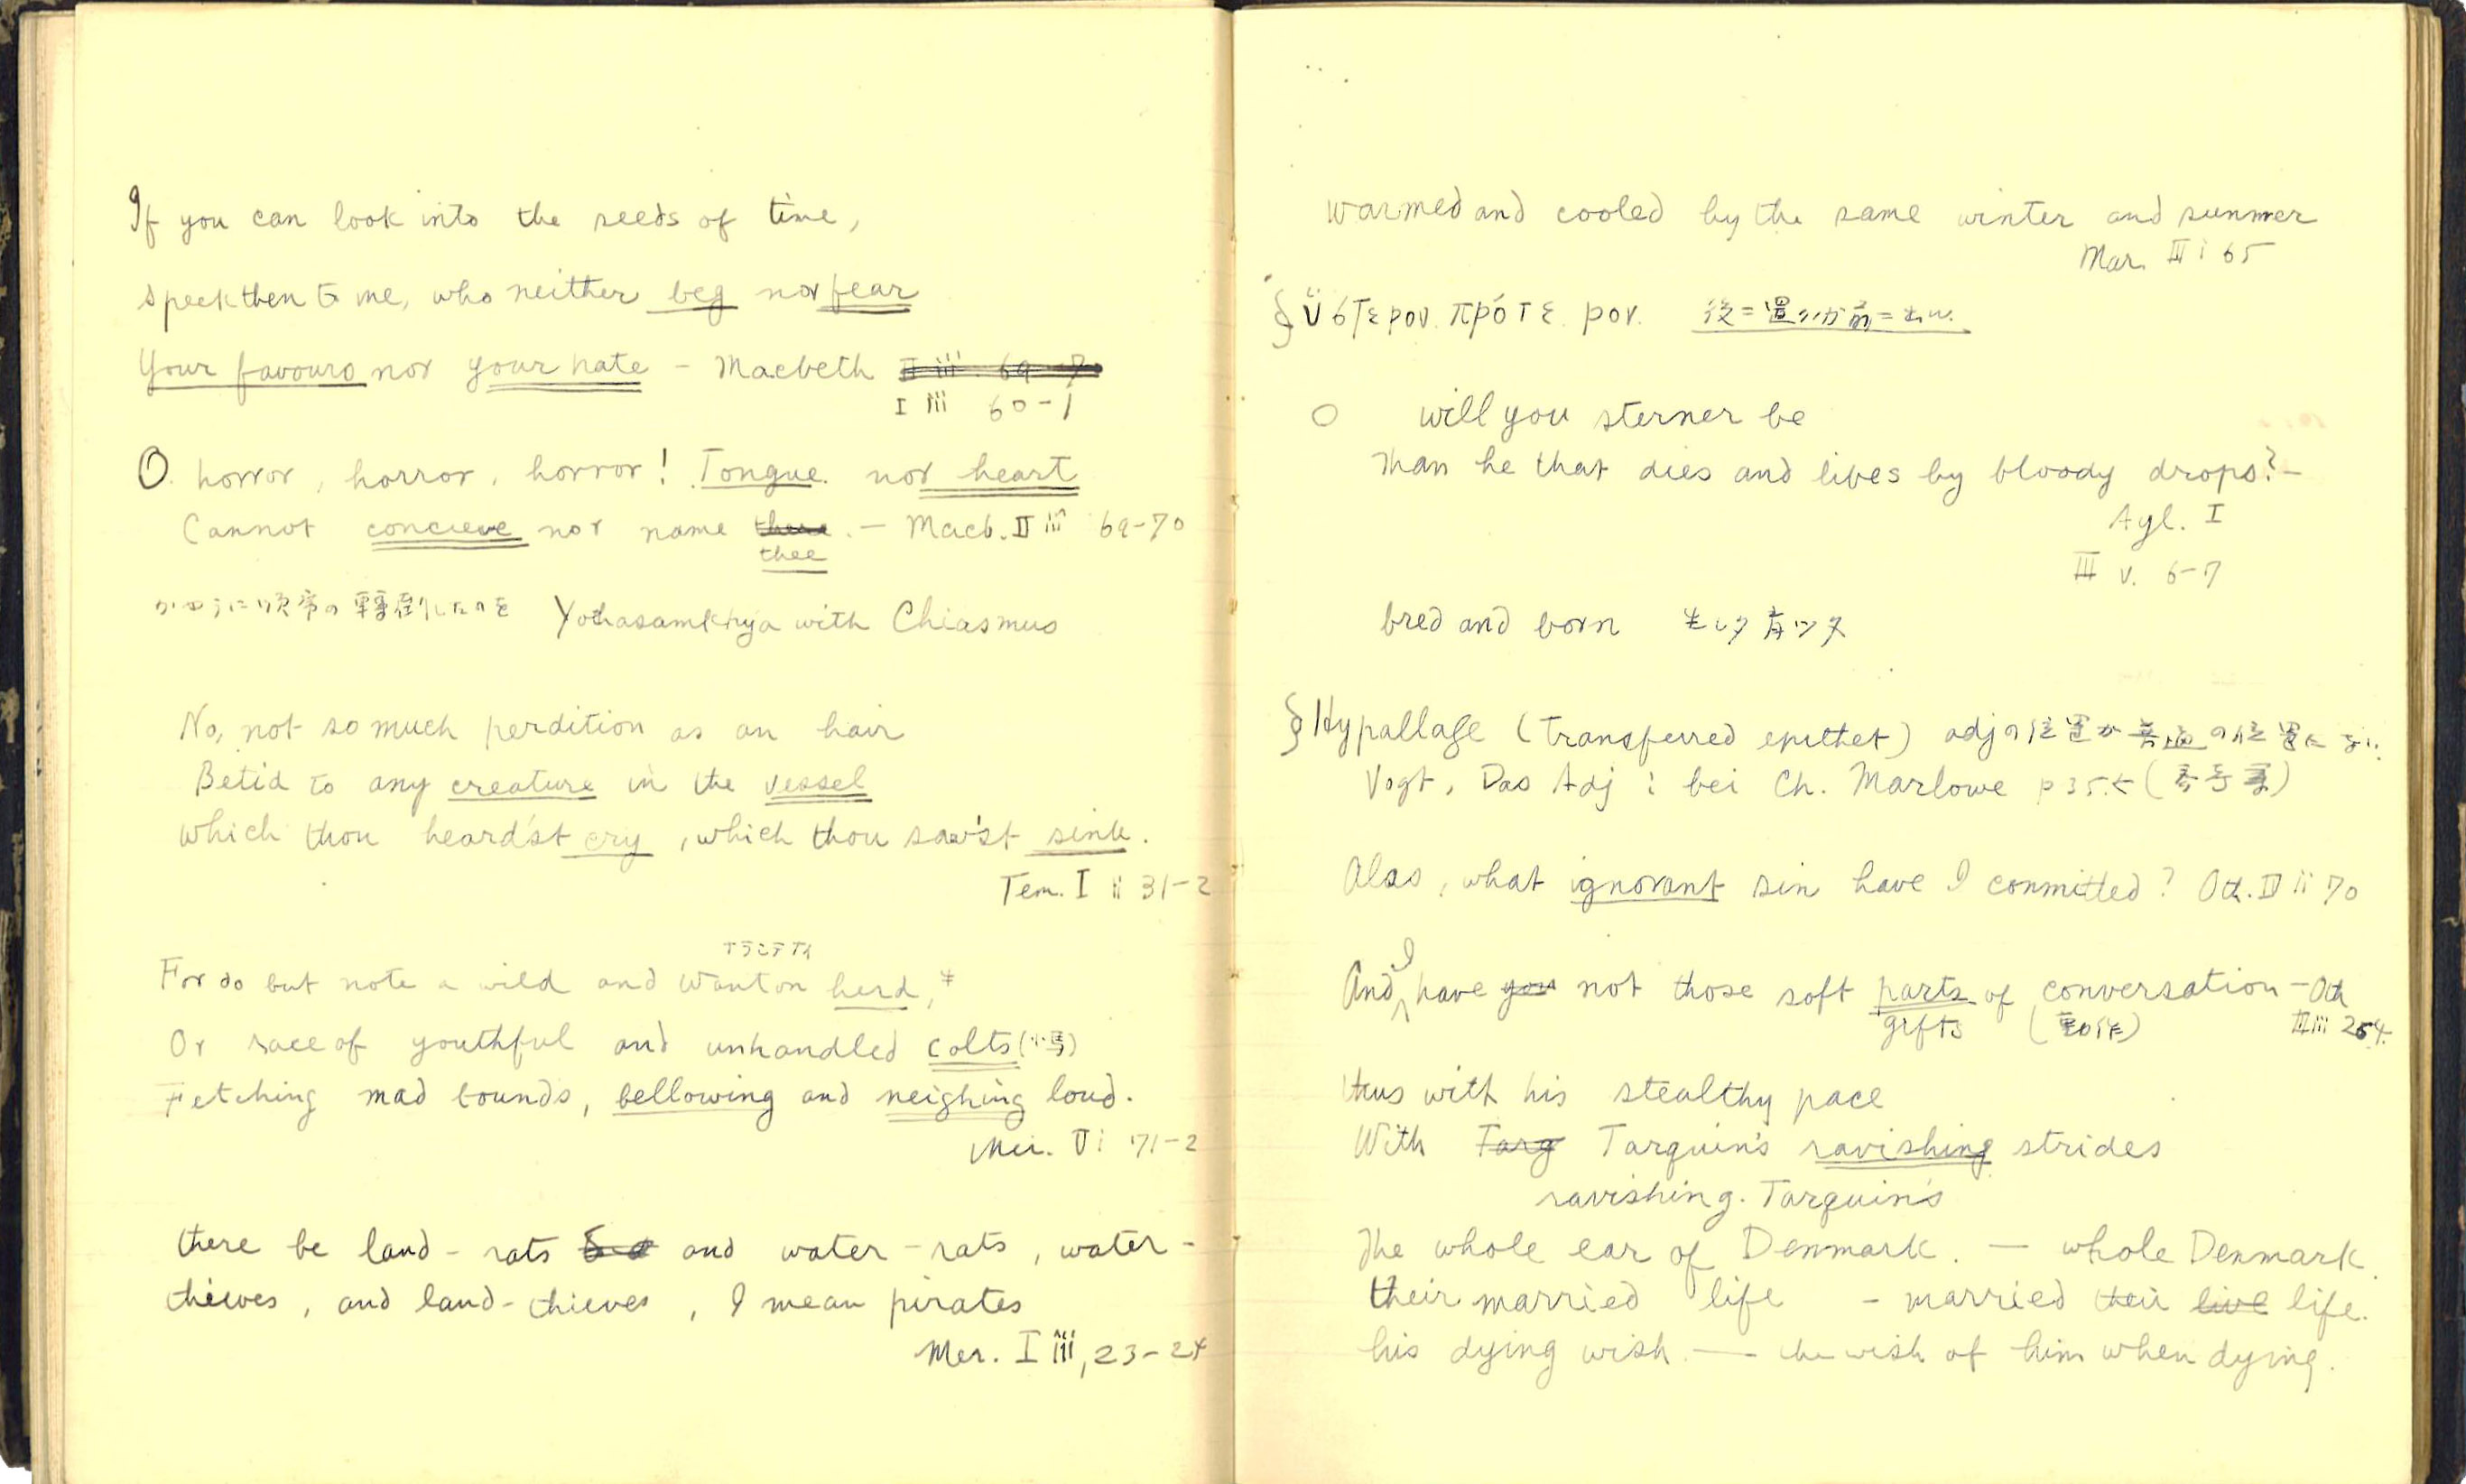 If you can look into the seeds of time,
speek then to me, who neither beg nor fear
Your favours nor your hate - Macbeth II iii 69-70
I iii 60-1
O horror, horror, horror! Tongue nor heart
Cannot concieve nor name there. - Macb. II iii 69-70
thee
かやうに順常の轉倒したのを Yathasamkhya with Chiasmus
No, not so much perdition as an hair
Betid to any creature in the vessel
Which thou heard'st cry, which thou saw'st sink.
Tem. I ii 31-2
For do but note a wild and wanton herd,
Or race of youthful and unhandled colts (小馬)
Fetching mad bounds, bellowing and neighing loud.
Mer. V i 71-2
there be land-rats and water-rats, water-
thieves, and land-thieves, I mean pirates
Mer. I iii, 23-24
warmed and cooled by the same winter and summer
Mar. III i 65
§ ὕστερον πρότερον.
○ will you sterner be
Than he that dies and lives by bloody drops? -
Ayl. I
III v. 6-7
bred and born 生レタ育ツタ
§ Hypallage (Transferred epithet) adjの位置が普通の位置に
Vogt, Das Adj : bei Ch. Marlowe p 35 (参考書)
Alas, what ignorant sin have I committed? Oth. IV ii 70
I
And have you not those soft parts of conversation - Oth
gifts (動作) III iii 264.
thus with his stealthy pace
With Tarq Tarquin's ravishing strides
ravishing. Tarquin's
The whole ear of Denmark. — whole Denmark.
their married life - married their live life.
his dying wish — the wish of him when dying.